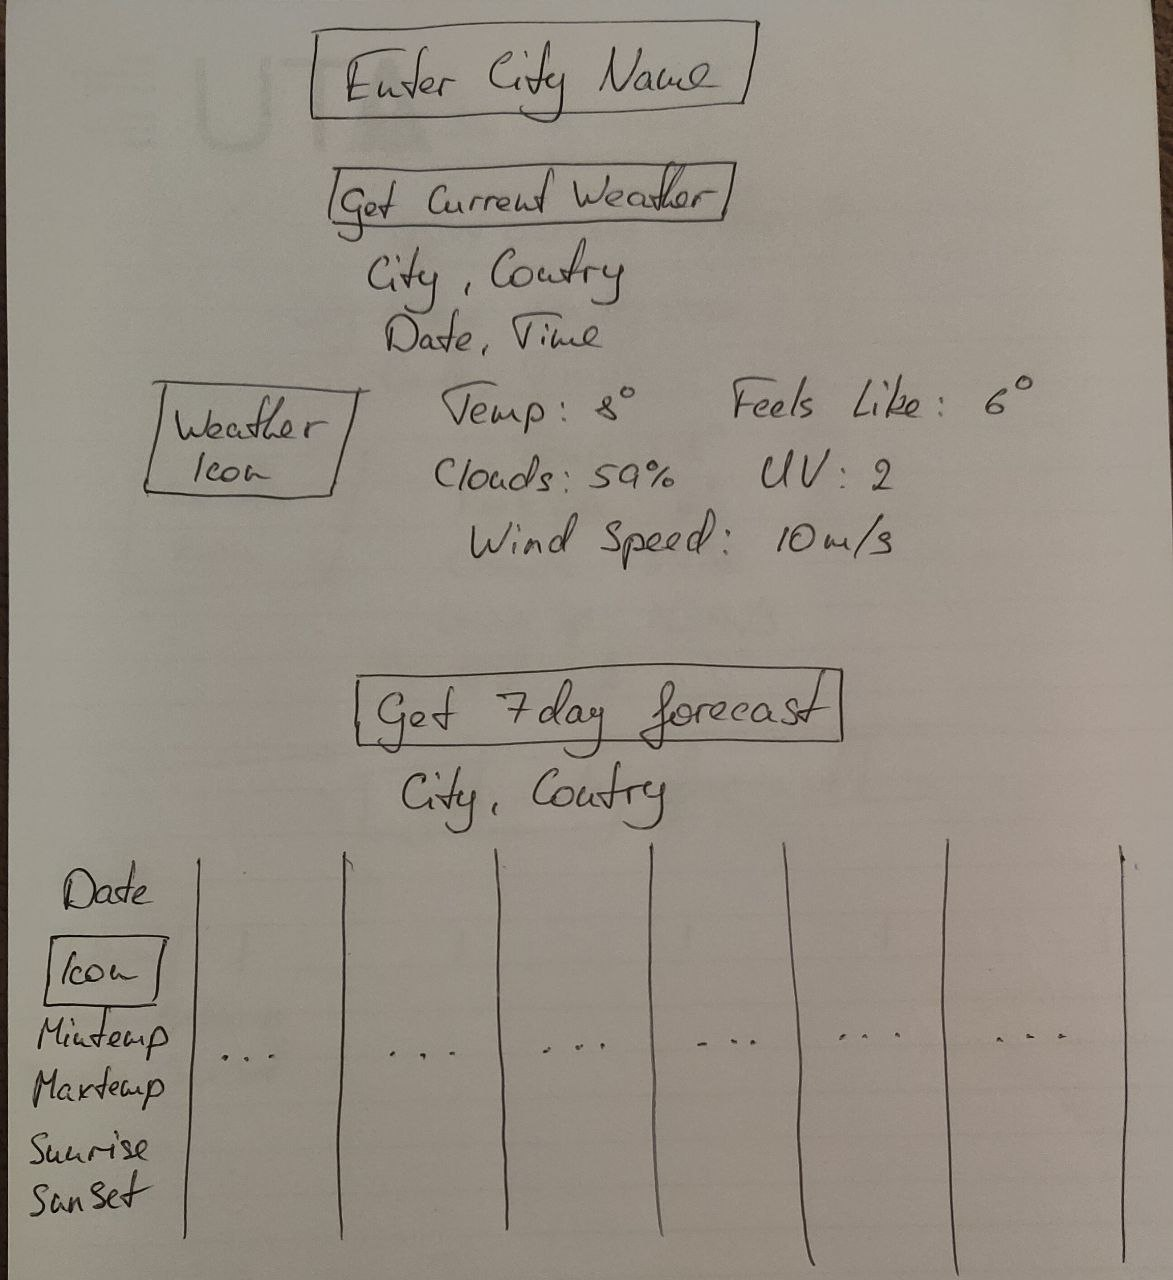 Enter City Name
Get Current Weather
City, Coutry
Date, Time
Weather Icon
Temp: 8° Feels Like: 6°
Clouds: 59% UV: 2
Wind Speed: 10m/s
Get 7day forecast
City, Coutry
Date
Icon
Mintemp
... ... ... ... ... ...
Maxtemp
Sunrise
Sunset